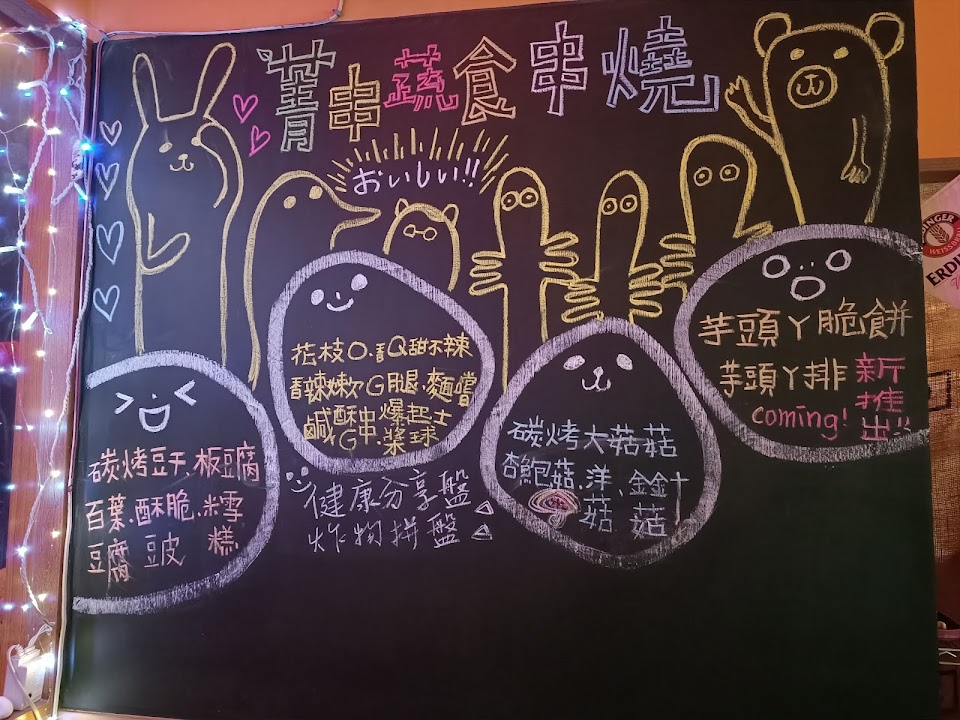 菁串蔬食串燒
おいしい!!
花枝O.青Q甜不辣
香辣嫩G腿.麵嚐
鹹酥G串.爆漿起士球
碳烤豆干.板豆腐
百葉豆腐.酥脆豆皮.米雪糕
健康分享盤
炸物拼盤
碳烤大菇菇
杏鮑菇.洋菇、金針菇
芋頭丫脆餅
芋頭丫排
新推出!!
coming!
ERDI